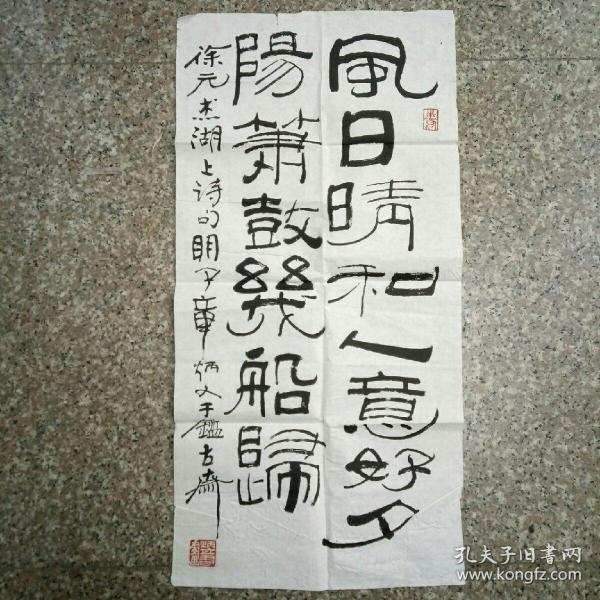 風日晴和人意好夕
陽簫鼓幾船歸
徐元杰湖上诗句明子章炳文于鑑古齋
孔夫子旧書网
www.kongfz.com